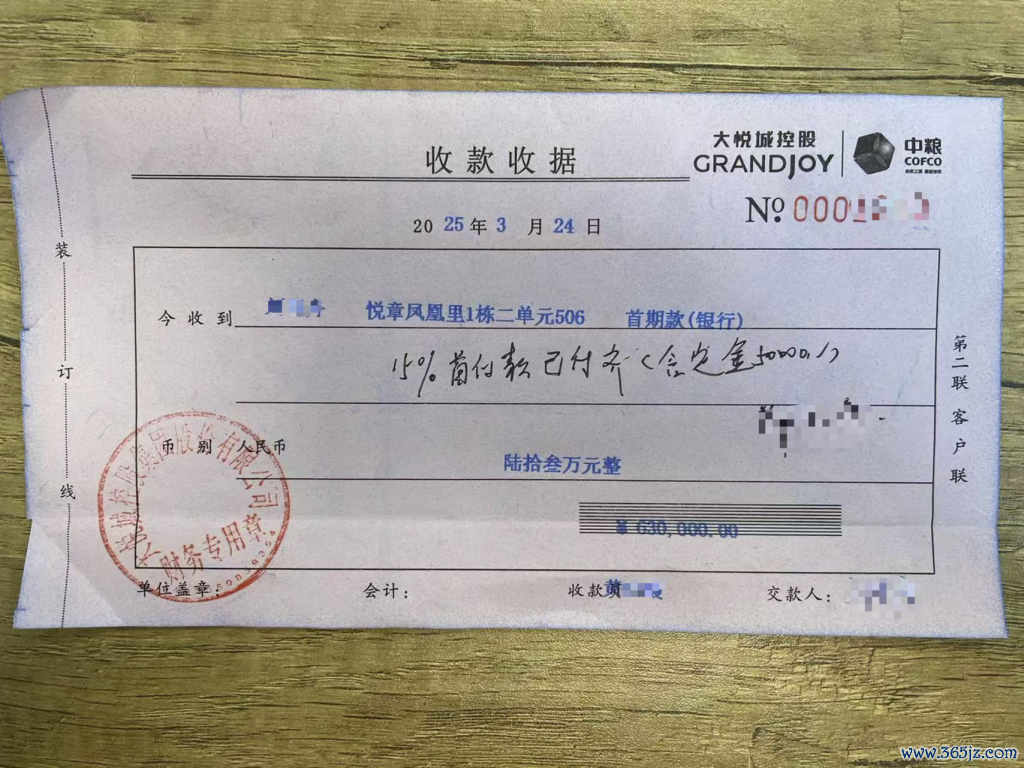 大悦城控股
GRANDJOY
中粮
COFCO
收款收据
No.
2025年3月24日
装
订
线
今收到 悦章凤凰里1栋二单元506 首期款(银行)
15%首付款已付齐(含定金50000.-)
币别 人民币
陆拾叁万元整
¥ 630,000.00
大悦城控股集团股份有限公司
财务专用章
单位盖章: 会计: 收款员 交款人:
第二联 客户联
www.365jz.com